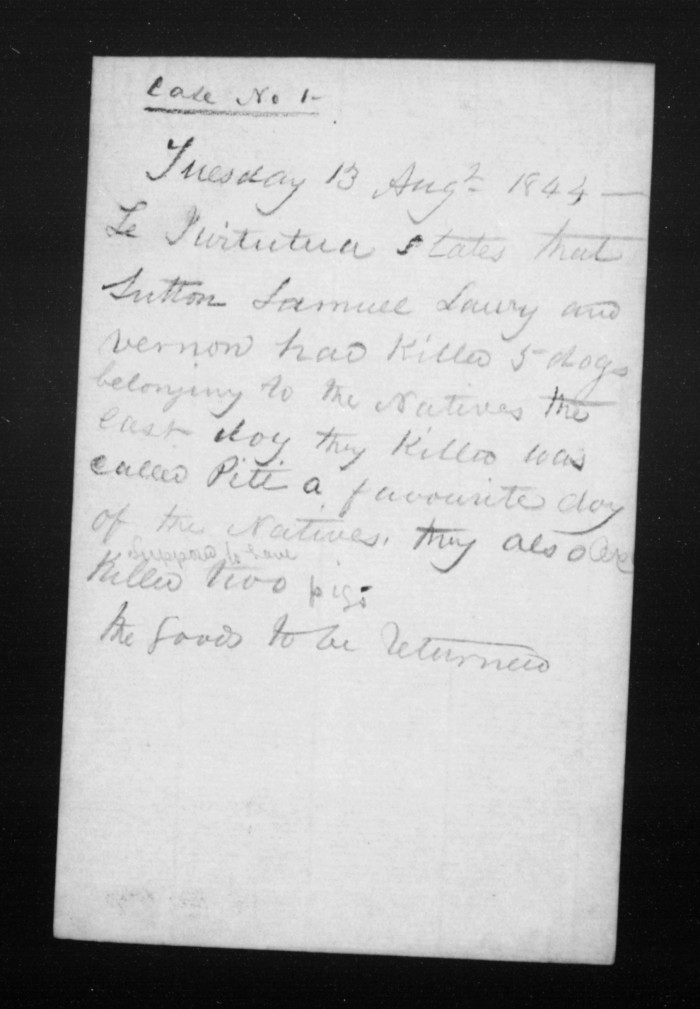 Case No 1-
Tuesday 13 Augt 1844 —
Te Iwitutua states that
Sutton Samuel Lawry and
Vernon had Killed 5 dogs
belonging to the Natives the
last dog they Killed was
called Piti a favourite dog
of the Natives. they also are
supposed to have
Killed two pigs
the goods to be returned